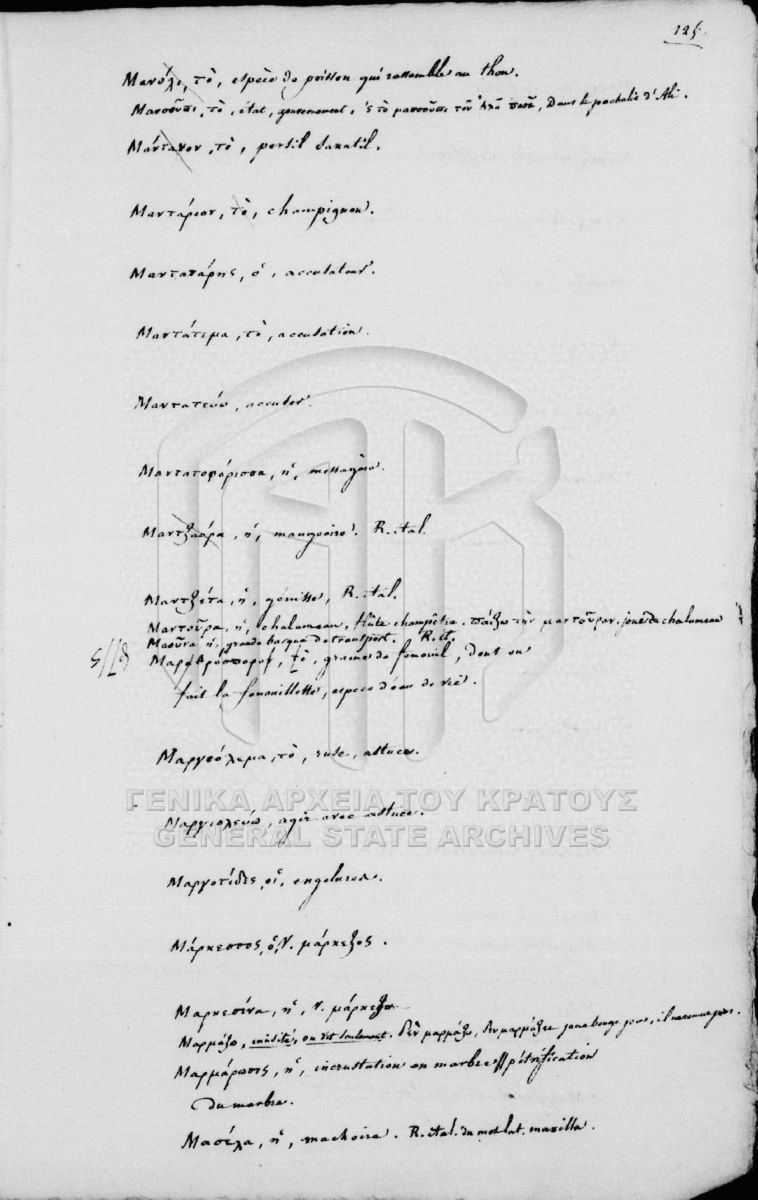 125.
Μανόλι, τὸ, espèce de poisson qui ressemble au thon.
Μανσοῦπι, τὸ, état, gouvernement, 'ς τὸ μανσοῦπι τοῦ Ἀλῆ πασᾶ, Dans le pachalic d'Ali.
Μάντανον, τὸ, persil
Μαντάριον, τὸ, champignon.
Μανταπάρης, ὁ, accusateur.
Μαντάτεμα, τὸ, accusation.
Μαντατεύω, accuser.
Μαντατοφόρισσα, ἡ, messagère.
Μαντζαάρα, ἡ, mangeoire. R. ital.
Μαντζέτα, ἡ, génisse, R. ital.
Μαντοῦρα, ἡ, chalumeau, flûte champêtre. παίζω τὴν μαντοῦραν, joue du chalumeau
Μαοῦνα ἡ, grande barque de transport. R. it.
Μαραθρόσπορον, τὸ, graine de fenouil, dont on
fait la fenouillette, espèce d'eau de vie.
Μαργιόλεμα, τὸ, ruse, astuce.
Μαργιολεύω, agir avec astuce.
Μαργοτίδες, οἱ, engelures.
Μάρκεσσος, ὁ, V. μάρκεζος.
Μαρκεσίνα, ἡ, V.
Μαρμάζω, inusité, on dit seulement. δὲν μαρμάζω, δὲν μαρμάζει je ne bouge pas, il ne remue pas.
Μαρμάρωσις, ἡ, incrustation en marbre // pétrification
du marbre.
Μασέλα, ἡ, machoire. R. ital. du mot lat. maxilla.
ΓΕΝΙΚΑ ΑΡΧΕΙΑ ΤΟΥ ΚΡΑΤΟΥΣ
GENERAL STATE ARCHIVES